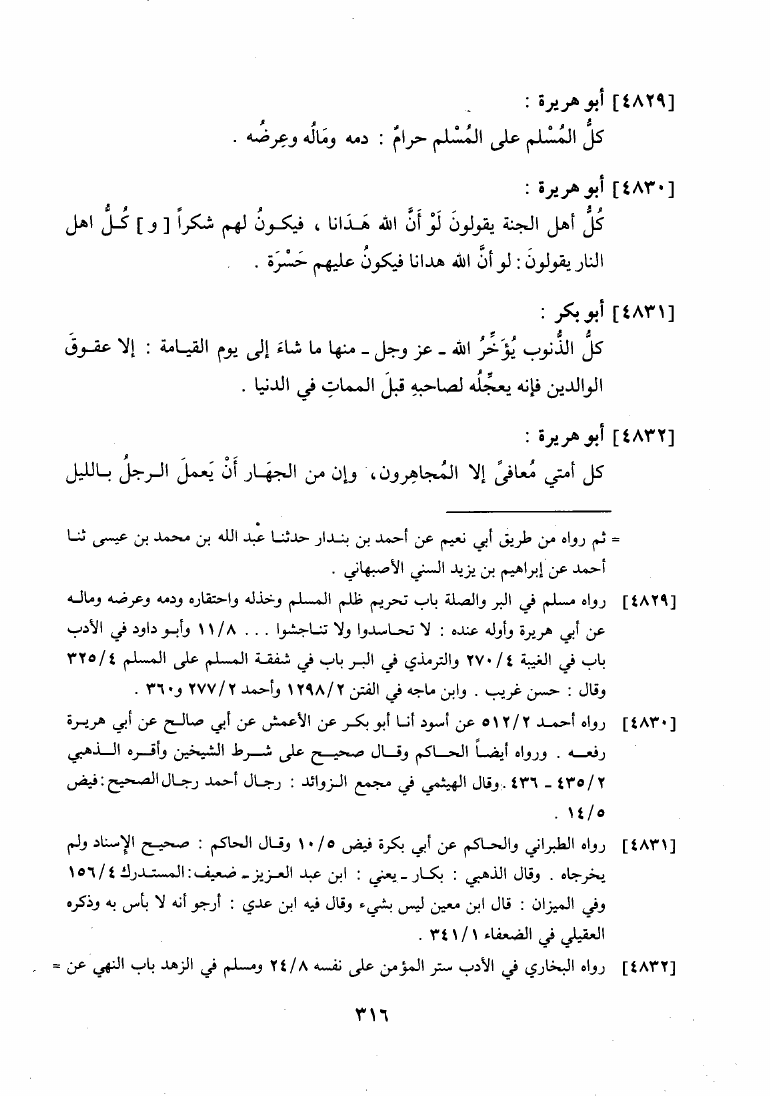 [٤٨٢٩] أبو هريرة :
كلُّ المُسْلم على المُسْلم حرامٌ : دمه ومَالُه وعِرضُه .
[٤٨٣٠] أبو هريرة :
كُلُّ أهل الجنة يقولونَ لَوْ أَنَّ الله هَدَانا ، فيكونُ لهم شكراً [ و ] كُلُّ اهل
النار يقولونَ : لو أنَّ الله هدانا فيكونُ عليهم حَسْرَة .
[٤٨٣١] أبو بكر :
كلُّ الذُّنوب يُؤَخِّرُ الله - عز وجل - منها ما شاءَ إلى يوم القيامة : إلا عقوقَ
الوالدين فإنه يعجِّلُه لصاحبهِ قبلَ المماتِ في الدنيا .
[٤٨٣٢] أبو هريرة :
كل أمتي مُعافىً إلا المُجاهِرون، وإن من الجهَار أَنْ يَعملَ الرجلُ بالليل
= ثم رواه من طريق أبي نعيم عن أحمد بن بندار حدثنا عبد الله بن محمد بن عيسى ثنا
أحمد عن إبراهيم بن يزيد السني الأصبهاني .
[٤٨٢٩] رواه مسلم في البر والصلة باب تحريم ظلم المسلم وخذله واحتقاره ودمه وعرضه وماله
عن أبي هريرة وأوله عنده : لا تحاسدوا ولا تناجشوا . . . ١١/٨ وأبو داود في الأدب
باب في الغيبة ٢٧٠/٤ والترمذي في البر باب في شفقة المسلم على المسلم ٣٢٥/٤
وقال : حسن غريب . وابن ماجه في الفتن ١٢٩٨/٢ وأحمد ٢٧٧/٢ و٣٦٠ .
[٤٨٣٠] رواه أحمد ٥١٢/٢ عن أسود أنا أبو بكر عن الأعمش عن أبي صالح عن أبي هريرة
رفعه . ورواه أيضاً الحاكم وقال صحيح على شرط الشيخين وأقره الذهبي
٤٣٥/٢ - ٤٣٦ . وقال الهيثمي في مجمع الزوائد : رجال أحمد رجال الصحيح : فيض
١٤/٥ .
[٤٨٣١] رواه الطبراني والحاكم عن أبي بكرة فيض ١٠/٥ وقال الحاكم : صحيح الإسناد ولم
يخرجاه . وقال الذهبي : بكار - يعني : ابن عبد العزيز - ضعيف : المستدرك ١٥٦/٤
وفي الميزان : قال ابن معين ليس بشيء وقال فيه ابن عدي : أرجو أنه لا بأس به وذكره
العقيلي في الضعفاء ٣٤١/١ .
[٤٨٣٢] رواه البخاري في الأدب ستر المؤمن على نفسه ٢٤/٨ ومسلم في الزهد باب النهي عن =
٣١٦